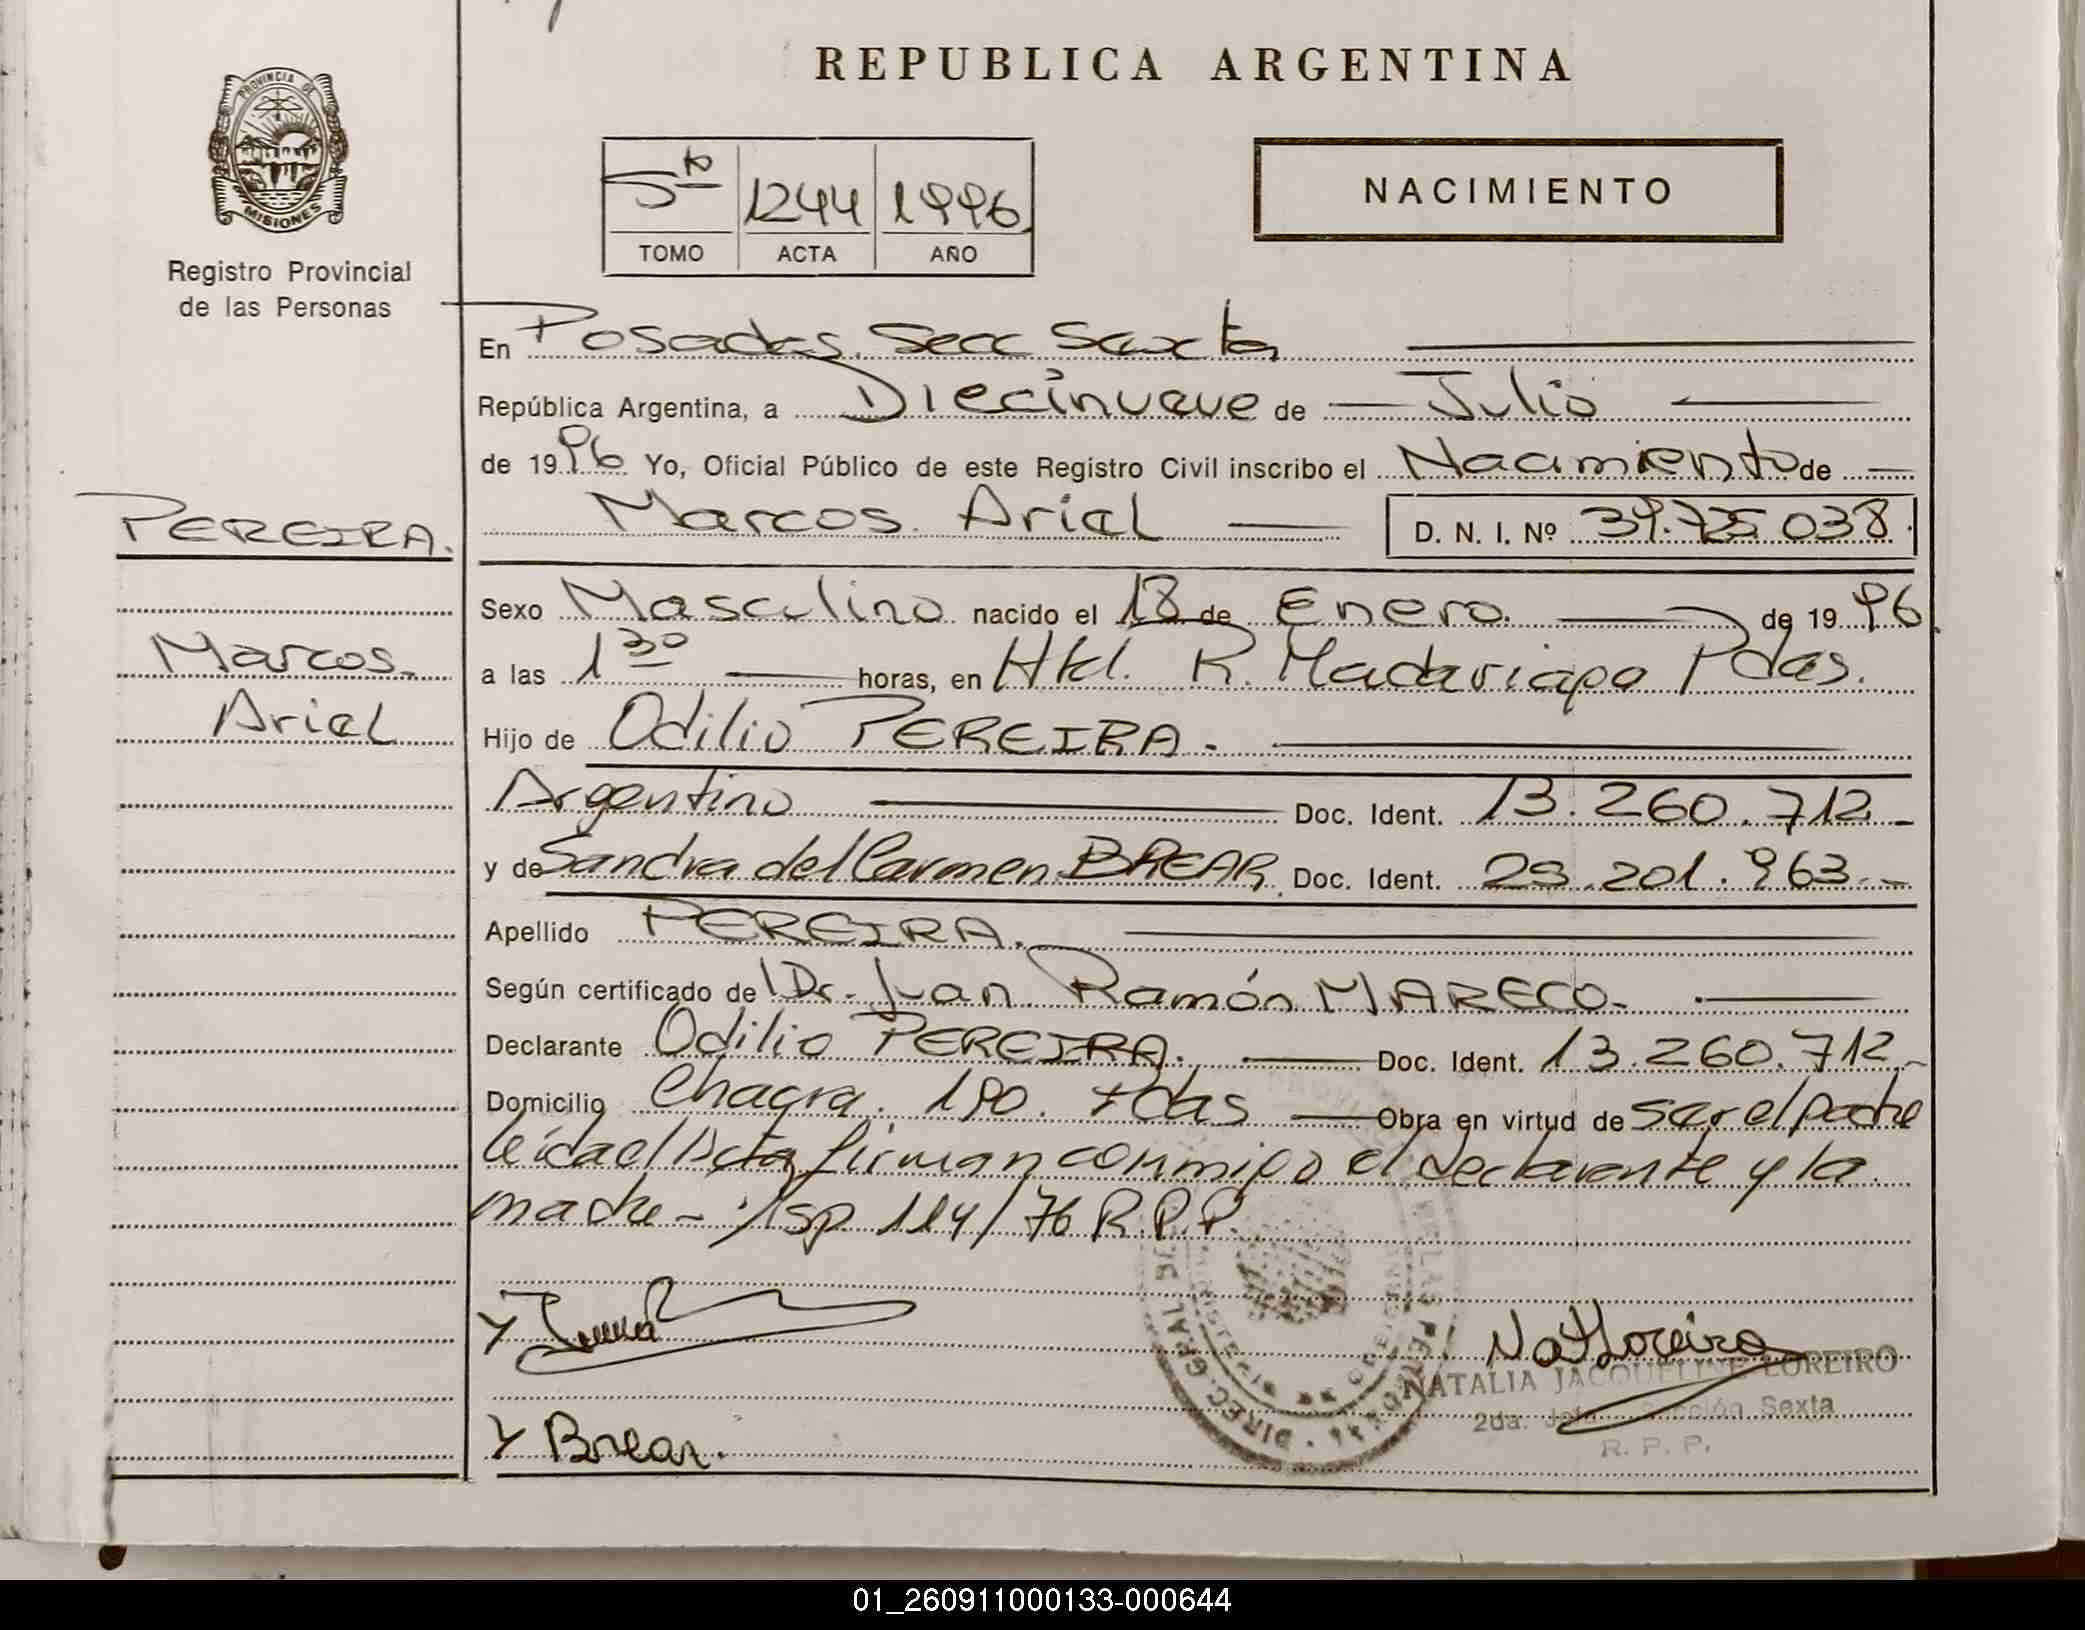 REPUBLICA ARGENTINA
PROVINCIA DE
MISIONES
Registro Provincial
de las Personas
5to 1244 1996
TOMO ACTA AÑO
NACIMIENTO
En Posadas. Secc Sexta
República Argentina, a Diecinueve de Julio
de 1996 Yo, Oficial Público de este Registro Civil inscribo el Nacimiento de
Marcos Ariel D. N. I. Nº 39.725.038
PEREIRA.
Marcos.
Ariel
Sexo Masculino nacido el 18 de Enero. de 1996
a las 1 30 horas, en Htal. R. Madariaga Pdas.
Hijo de Odilio PEREIRA.
Argentino Doc. Ident. 13.260.712
y de Sandra del Carmen BREAR Doc. Ident. 29.201.963.
Apellido PEREIRA.
Según certificado de Dr. Juan Ramón MARECO.
Declarante Odilio PEREIRA. Doc. Ident. 13.260.712
Domicilio Chacra. 190. Pdas Obra en virtud de ser el padre
leída el Acta firman conmigo el declarante y la
madre - Disp 114/76 R.P.P.
Nat Loreiro
NATALIA JACQUELINE LOREIRO
2da. Jefa Sección Sexta
R. P. P.
Brear.
01_260911000133-000644